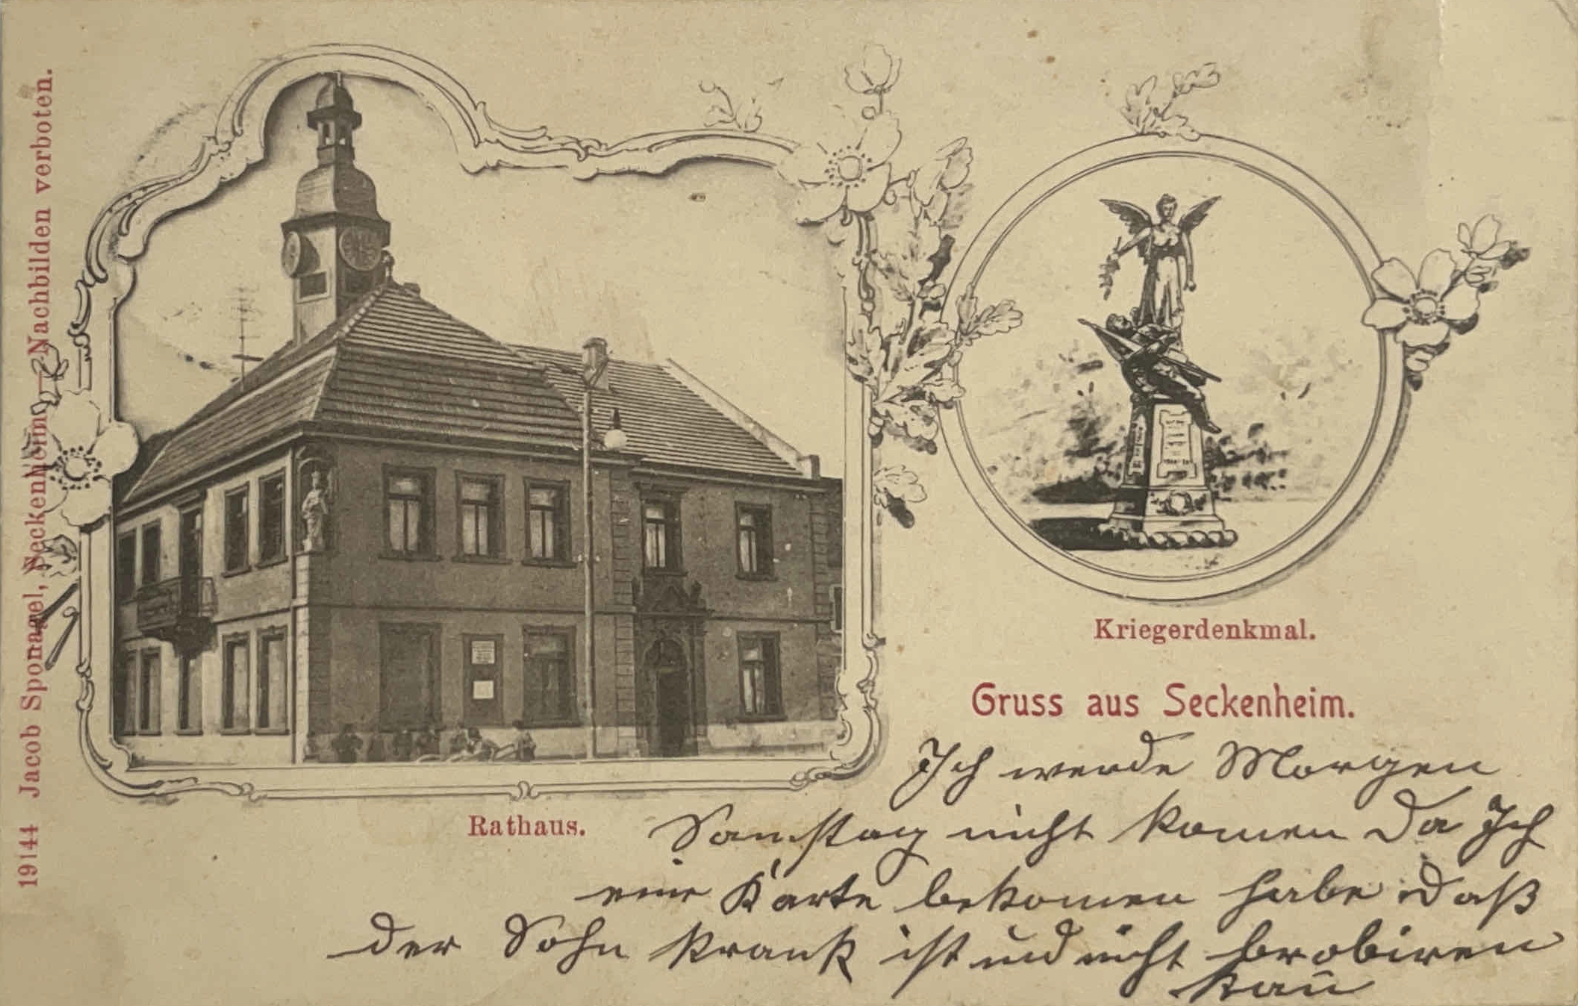 19144 Jacob Sponagel, Seckenheim. — Nachbilden verboten.
Rathaus.
Kriegerdenkmal.
Gruss aus Seckenheim.
Ich werde Morgen
Samstag nicht komen Da Ich
eine Karte bekomen habe daß
der Sohn krank ist und nicht brobiren
kan̄